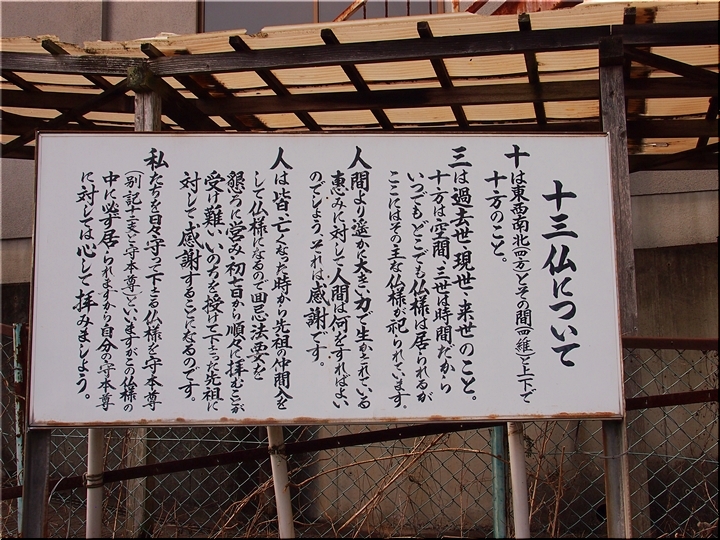 十三仏について
十は東西南北(四方)とその間(四維)と上下で
十方のこと。
三は過去世・現世・来世のこと。
十方は空間、三世は時間だから
いつでもどこでも仏様は居られるが
ここにはその主な仏様が祀られています。
人間より遥かに大きい力で生かされている
恵みに対して人間は何をすればよい
のでしょう。それは感謝です。
人は皆亡くなった時から先祖の仲間入を
して仏様になるので回忌法要を
懇ろに営み・初七日から順々に拝むことが
受け難いいのちを授けて下さった先祖に
対して感謝することになるのです。
私たちを日々守って下さる仏様を守本尊
(別記十二支と守本尊)といいますがこの仏様の
中に必ず居られますから自分の守本尊
に対しては心して拝みましょう。